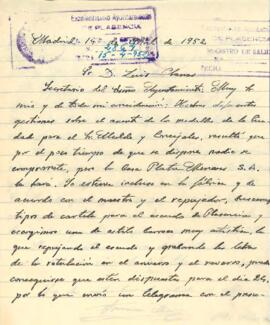 Excelentísimo Ayuntamiento
DE PLASENCIA
Madrid 15 de Abril de 1952
Sr. D. Luis
Secretario del Excmo Ayuntamiento: Muy Sr
mío y de toda mi consideración: Hechas diferentes
gestiones sobre el asunto de la medalla de la Ciu
dad para el Sr Alcalde y Concejales, resultó que
por el poco tiempo de que se dispone nadie se
compromete, pero la Casa Plata Meneses S.A.
la hará. Yo estuve incluso en la fábrica y de
acuerdo con el maestro y el repujador, buscamos
tipos de cartela para el escudo de Plasencia y
escogimos una de estilo barroco muy artística, la
que repujando el escudo y grabando las letras
de la rotulación en el anverso y el reverso, puede
conseguirse que estén dispuestas para el día 24,
por lo que envié un telegrama con el